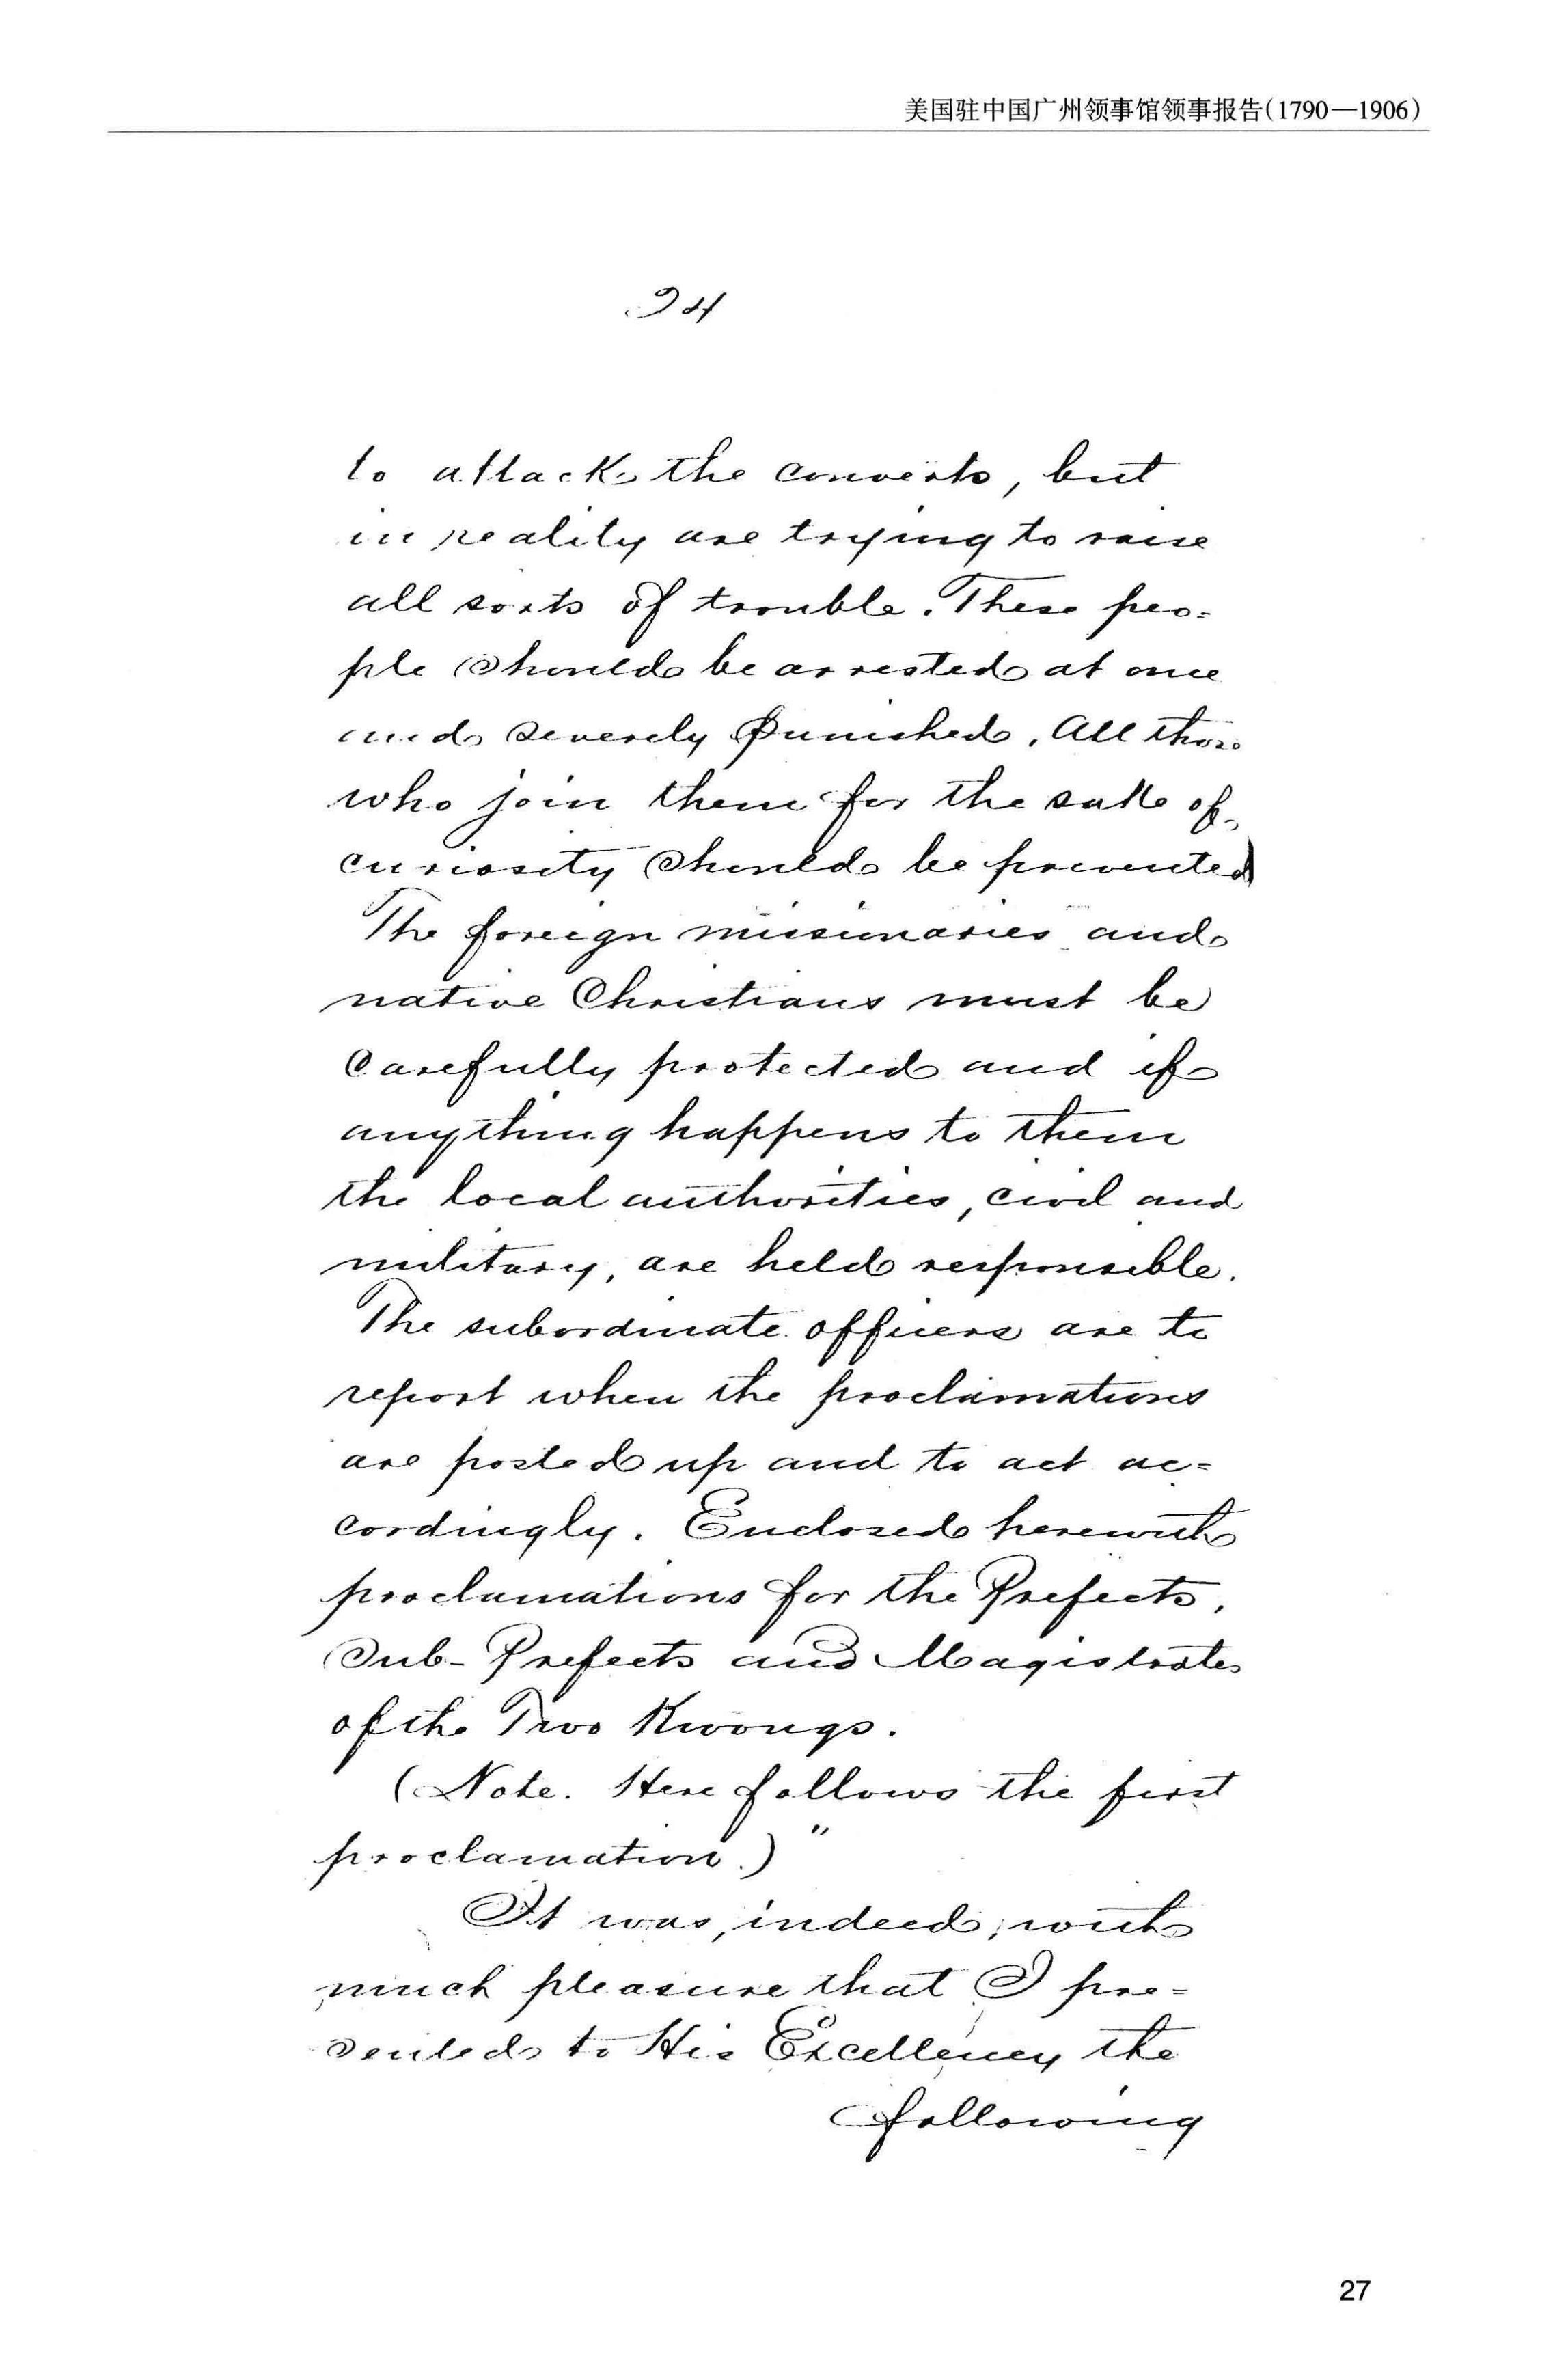 美国驻中国广州领事馆领事报告(1790—1906)
24
to attack the converts, but
in reality are trying to raise
all sorts of trouble. These peo-
ple should be arrested at once
and severely punished. All those
who join them for the sake of
curiosity should be prevented
The foreign missionaries and
native Christians must be
carefully protected and if
anything happens to them
the local authorities, civil and
military, are held responsible.
The subordinate officers are to
report when the proclamations
are posted up and to act ac=
cordingly. Enclosed herewith
proclamations for the Prefects,
Sub-Prefects and Magistrates
of the Two Kwongs.
(Note. Here follows the first
proclamation.)"
It was, indeed, with
much pleasure that I pre=
sented to His Excellency the
following
27